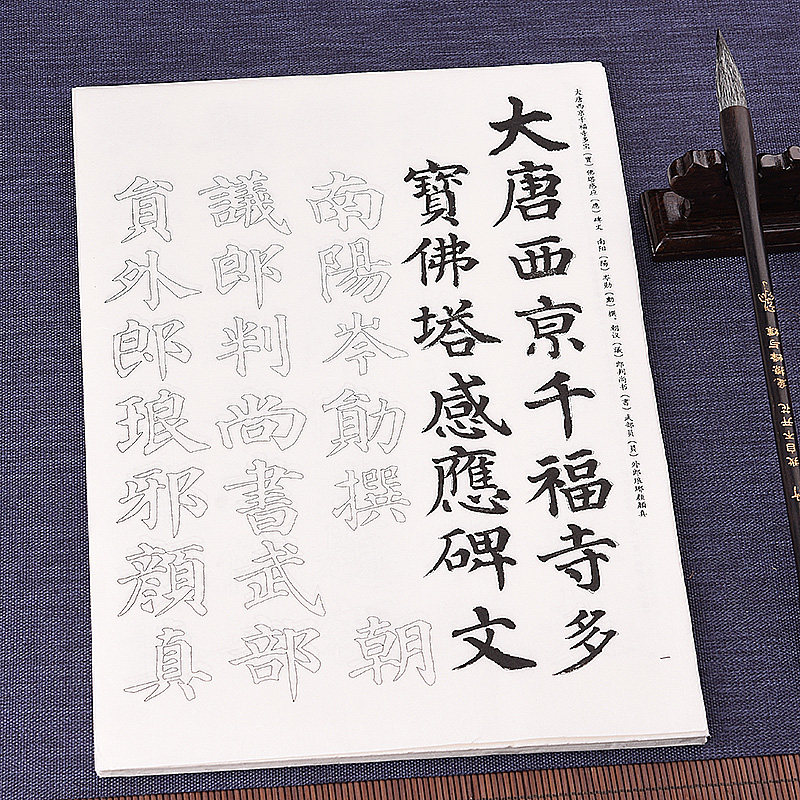 大唐西京千福寺多宝（寶）佛塔感应（應）碑文 南阳（陽）岑勋（勛）撰，朝议（議）郎判尚书（書）武部员（員）外郎琅琊颜真
大唐西亰千福寺多
寶佛塔感應碑文
南陽岑勛撰 朝
議郎判尚書武部
員外郎琅邪顔真
一
我自不开花 免撩蜂与蝶